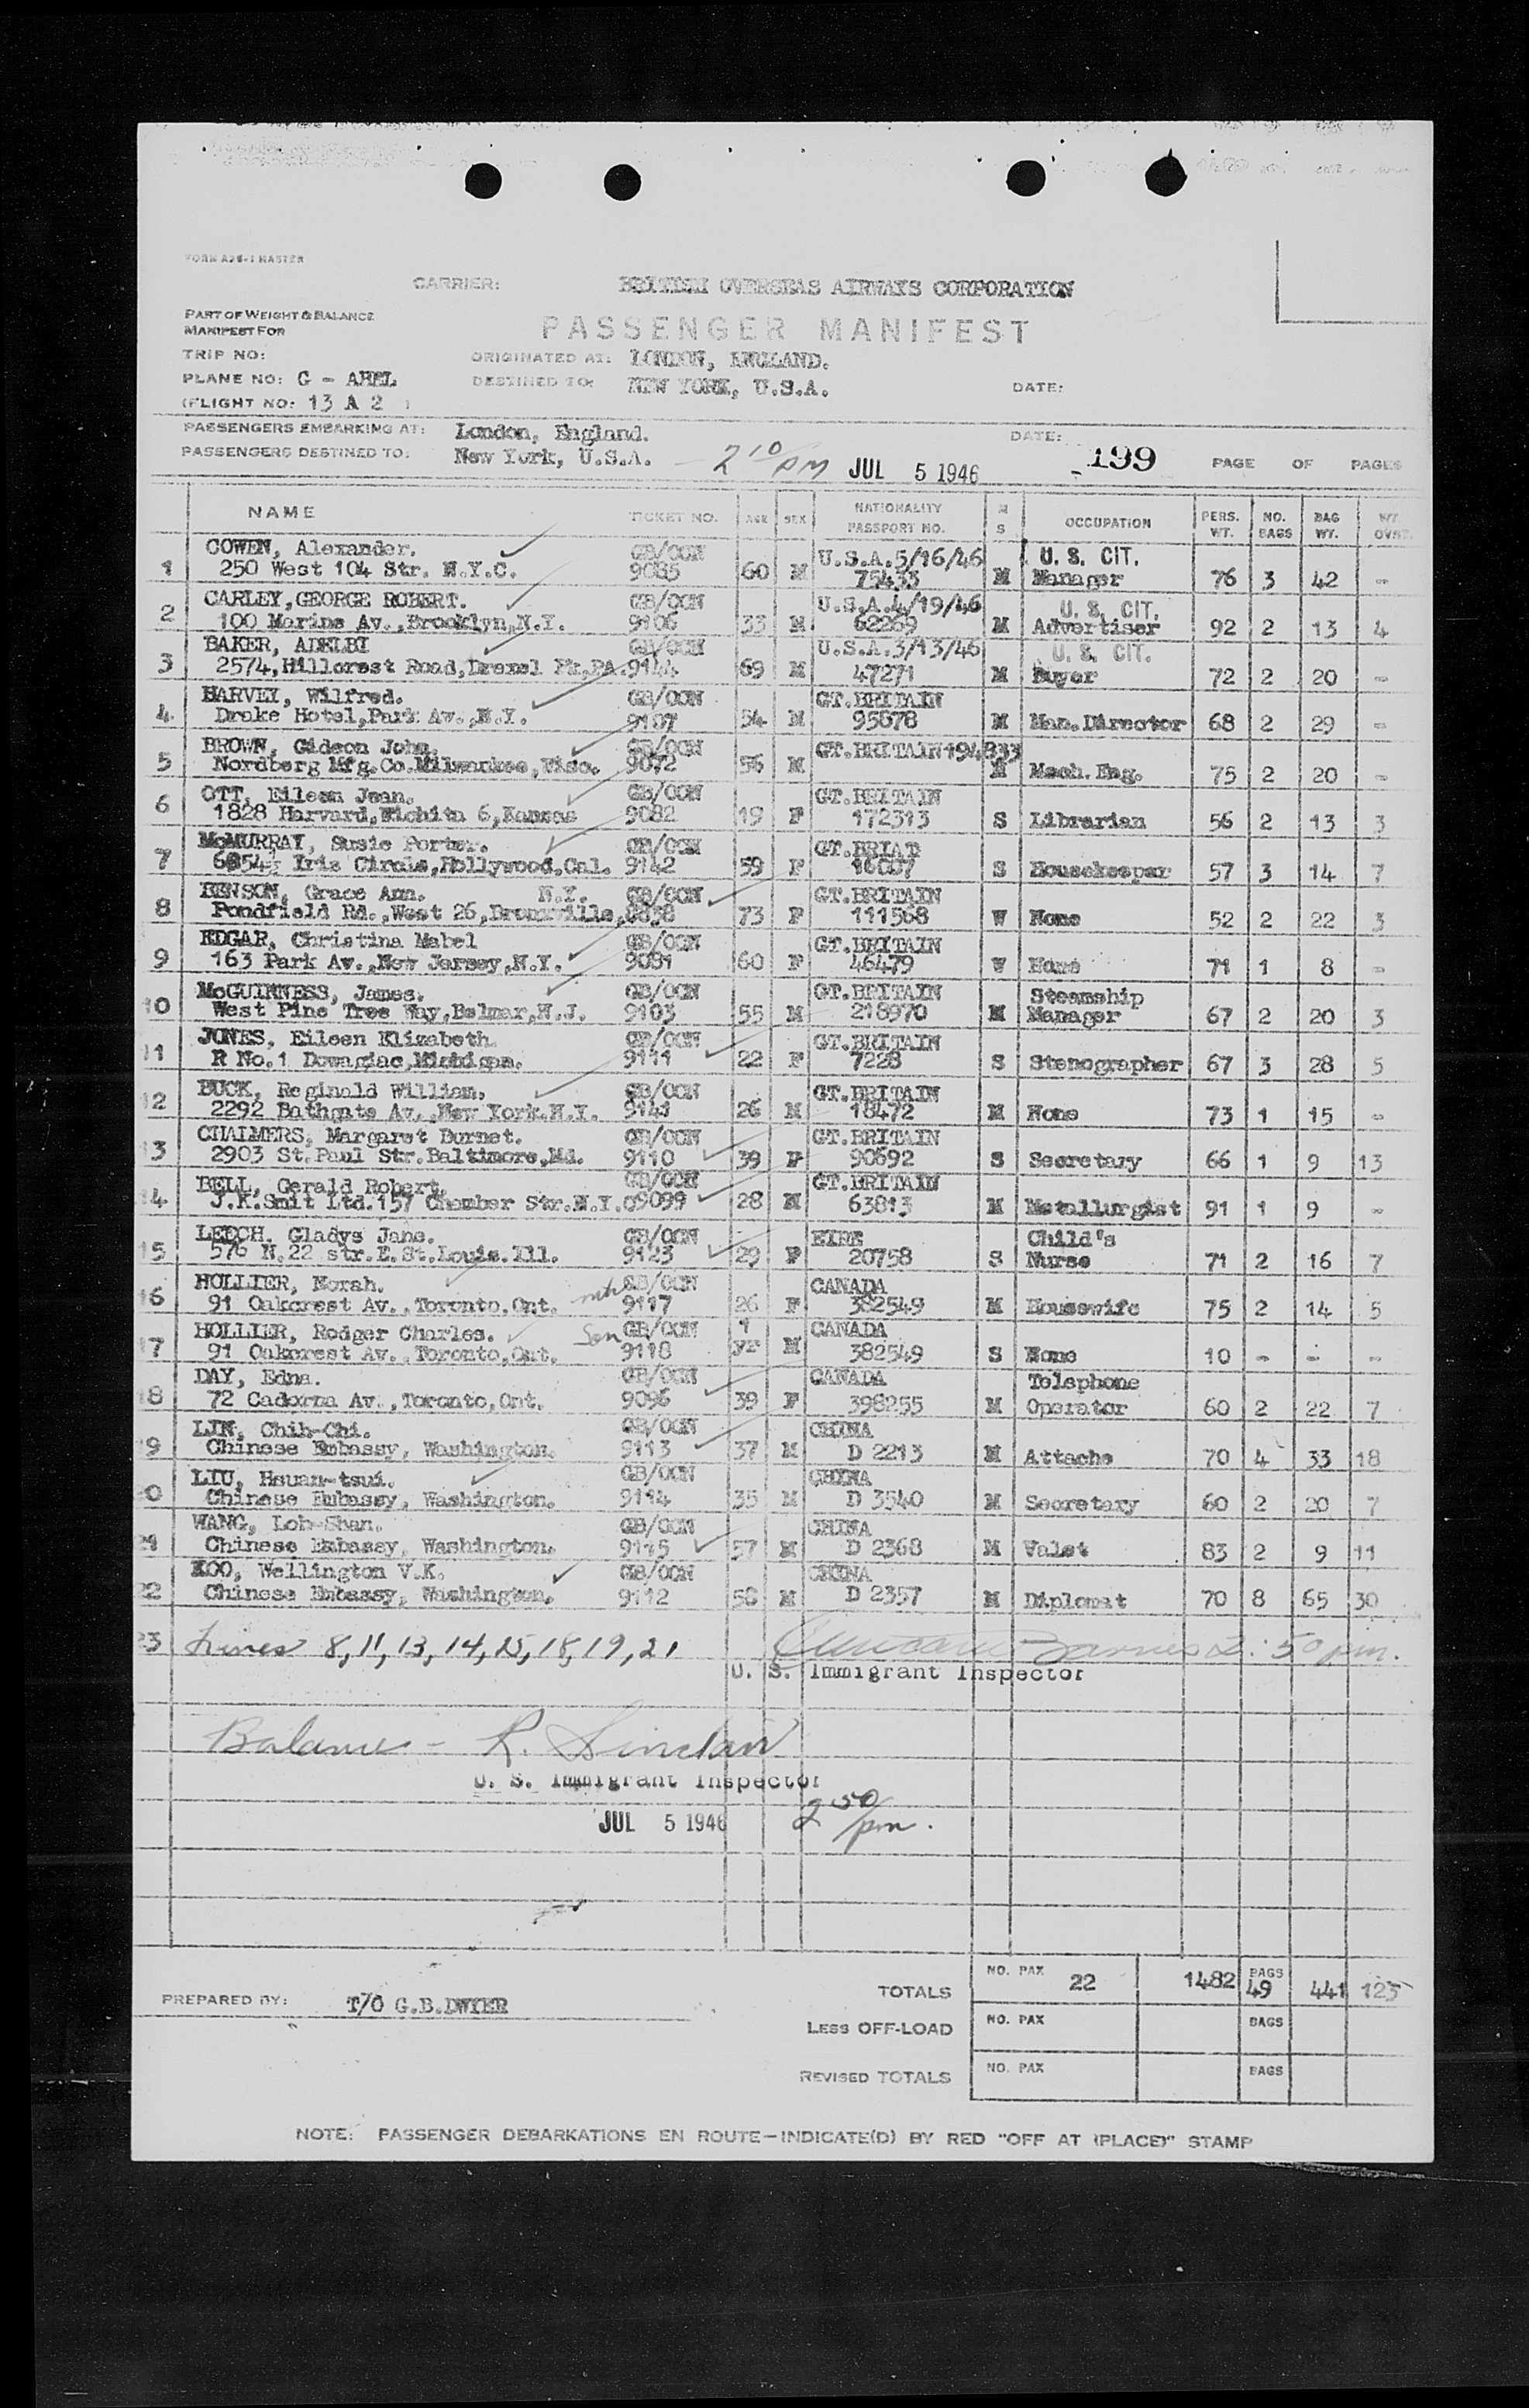 FORM A26-1 MASTER
CARRIER: BRITISH OVERSEAS AIRWAYS CORPORATION
PART OF WEIGHT & BALANCE
MANIFEST FOR
PASSENGER MANIFEST
TRIP NO: ORIGINATED AT: LONDON, ENGLAND.
PLANE NO: G - AHEL DESTINED TO: NEW YORK, U.S.A. DATE:
(FLIGHT NO: 13 A 2 )
PASSENGERS EMBARKING AT: London, England. DATE:
PASSENGERS DESTINED TO: New York, U.S.A. - 2 10 PM JUL 5 1946 199 PAGE OF PAGES
NAME TICKET NO. AGE SEX NATIONALITY PASSPORT NO. M S OCCUPATION PERS. WT. NO. BAGS BAG WT. WT OVST.
COWEN, Alexander. GB/OCN U.S.A.5/16/46 U. S. CIT.
1 250 West 104 Str. N.Y.C. 9085 60 M 75433 M Manager 76 3 42 -
CARLEY,GEORGE ROBERT. GB/OCN U.S.A.4/19/46 U. S. CIT.
2 100 Marine Av.,Brooklyn,N.Y. 9106 33 M 62269 M Advertiser 92 2 13 4
BAKER, ADELBT GB/OCN U.S.A.3/13/46 U. S. CIT.
3 2574,Hillcrest Road,Drexel Pk,PA. 9144 69 M 47271 M Buyer 72 2 20 -
HARVEY, Wilfred. GB/OCN GT.BRITAIN
4. Drake Hotel,Park Av.,N.Y. 9107 54 M 95878 M Man.Director 68 2 29 -
BROWN, Gideon John. GB/OCN GT.BRITAIN 194833
5 Nordberg Mfg.Co.Milwaukee,Wisc. 9072 56 M M Mech. Eng. 75 2 20 -
OTT, Eileen Jean. GB/OCN GT.BRITAIN
6 1828 Harvard,Wichita 6,Kansas 9082 19 F 172313 S Librarian 56 2 13 3
McMURRAY, Susie Porter. GB/OCN GT.BRIAT
7 6854½ Iris Circle,Hollywood,Cal. 9142 59 F S Housekeeper 57 3 14 7
BENSON, Grace Ann. N.Y. GB/OCN GT.BRITAIN
8 Pondfield Rd.,West 26,Bronxville, 9838 73 F 111568 W None 52 2 22 3
EDGAR, Christina Mabel GB/OCN GT.BRITAIN
9 163 Park Av.,New Jersey,N.Y. 9081 60 F 46479 W None 71 1 8 -
McGUINNESS, James. GB/OCN GT.BRITAIN Steamship
10 West Pine Tree Way,Belmar,N.J. 9103 55 M 218970 M Manager 67 2 20 3
JONES, Eileen Elizabeth. GB/OCN GT.BRITAIN
11 R No.1 Dowagiac,Michigan. 9111 22 F 7228 S Stenographer 67 3 28 5
BUCK, Reginald William. GB/OCN GT.BRITAIN
12 2292 Bathgate Av.,New York.N.Y. 9141 26 M 18472 M None 73 1 15 -
CHALMERS, Margaret Burnet. GB/OCN GT.BRITAIN
13 2903 St.Paul Str.Baltimore,Md. 9110 39 F 90692 S Secretary 66 1 9 13
BELL, Gerald Robert. GB/OCN GT.BRITAIN
14 J.K.Smit Ltd.157 Chamber Str.N.Y.C 9099 28 M 63813 M Metallurgist 91 1 9 -
LEECH. Gladys Jane. GB/OCN EIRE Child's
15 576 N.22 str.E.St.Louis.Ill. 9123 29 F 20758 S Nurse 71 2 16 7
HOLLIER, Norah. GB/OCN CANADA
16 91 Oakcrest Av.,Toronto,Ont. mth 9117 26 F 382549 M Housewife 75 2 14 5
HOLLIER, Rodger Charles. Son GB/OCN 1 CANADA
17 91 Oakcrest Av.,Toronto,Ont. 9118 yr M 382549 S None 10 - - -
DAY, Edna. GB/OCN CANADA Telephone
18 72 Cadorna Av.,Toronto,Ont. 9096 39 F 398255 M Operator 60 2 22 7
LIN, Chih-Chi. GB/OCN CHINA
19 Chinese Embassy, Washington. 9113 37 M D 2213 M Attache 70 4 33 18
LIU, Hsuan-tsui. GB/OCN CHINA
20 Chinese Embassy, Washington. 9114 35 M D 3540 M Secretary 60 2 20 7
WANG, Loh-Shan. GB/OCN CHINA
21 Chinese Embassy, Washington. 9115 57 M D 2368 M Valet 83 2 9 11
KOO, Wellington V.K. GB/OCN CHINA
22 Chinese Embassy, Washington. 9112 58 M D 2357 M Diplomat 70 8 65 30
23 Lines 8, 11, 13, 14, 15, 18, 19, 21 Barnes 2:50 pm.
U. S. Immigrant Inspector
Balance - R. Sinclair
U. S. Immigrant Inspector
JUL 5 1946 2 50 pm.
TOTALS NO. PAX 22 1482 BAGS 49 441 125
PREPARED BY: T/O G.B.DWYER
LESS OFF-LOAD NO. PAX BAGS
REVISED TOTALS NO. PAX BAGS
NOTE: PASSENGER DEBARKATIONS EN ROUTE—INDICATE(D) BY RED "OFF AT (PLACE)" STAMP